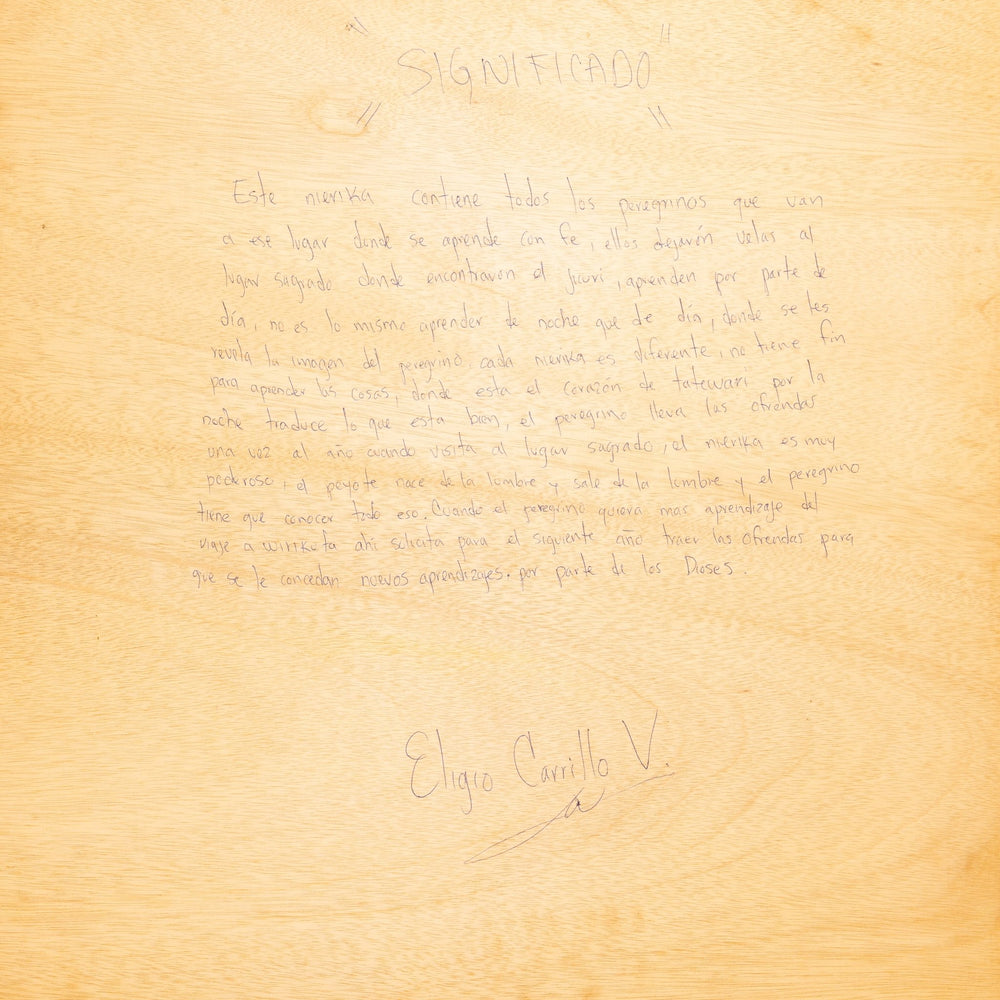 "SIGNIFICADO"
Este nierika contiene todos los peregrinos que van
a ese lugar donde se aprende con fe, ellos dejarón velas al
lugar sagrado donde encontraron el jicuri, aprenden por parte de
día, no es lo mismo aprender de noche que de día, donde se les
revela la imagen del peregrino, cada nierika es diferente, no tiene fin
para aprender las cosas, donde esta el corazón de tatewari por la
noche traduce lo que esta bien, el peregrino lleva las ofrendas
una vez al año cuando visita al lugar sagrado, el nierika es muy
poderoso, el peyote nace de la lumbre y sale de la lumbre y el peregrino
tiene que conocer todo eso. Cuando el peregrino quiera mas aprendizaje del
viaje a wirikuta ahi solicita para el siguiente año traer las ofrendas para
que se le concedan nuevos aprendizajes. por parte de los Dioses.
Eligio Carrillo V.